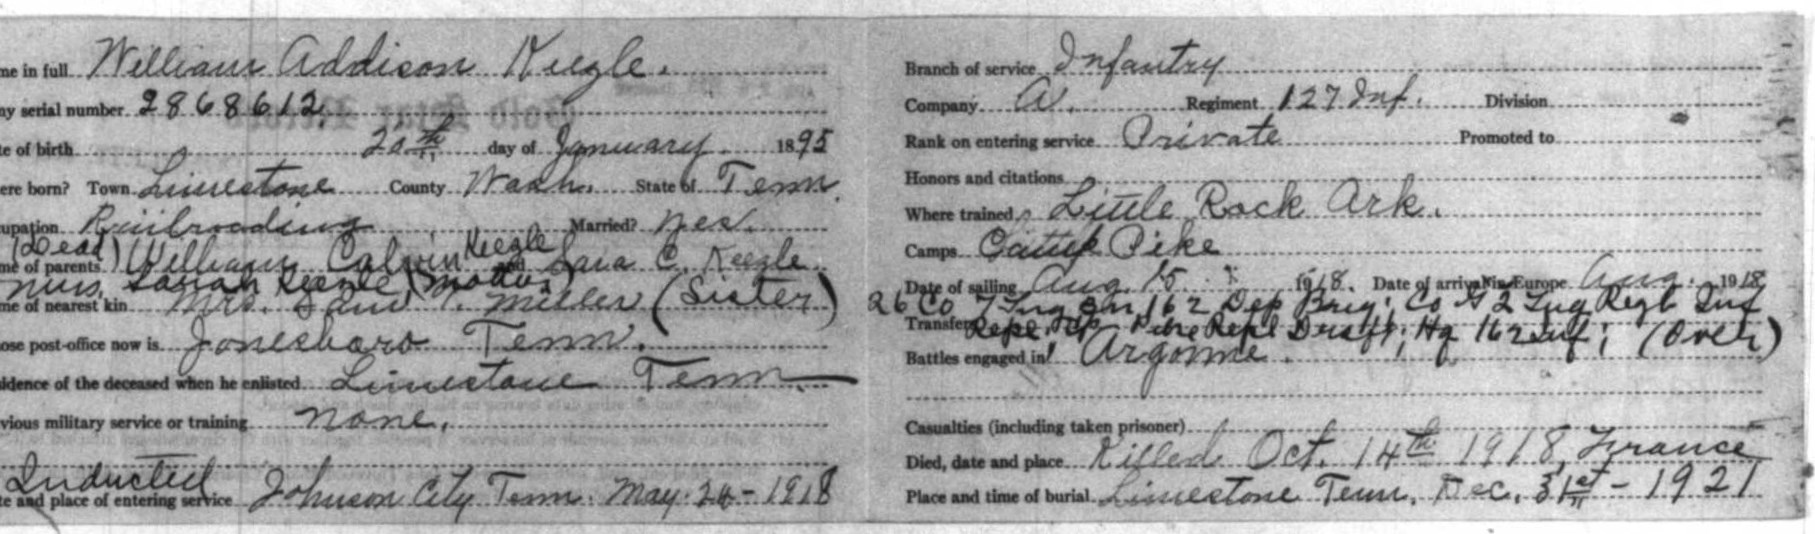 me in full William Addison Keezle.
ny serial number 2868612.
te of birth 20th day of January 1895
ere born? Town Limestone County Wash. State of Tenn.
upation Railroading Married? yes.
(Dead) Keezle
me of parents William Calvin and Sara C. Keezle.
Mrs. Sarah Keezle (Mother)
me of nearest kin Mrs. Miller (Sister)
ose post-office now is Jonesboro Tenn.
idence of the deceased when he enlisted Limestone Tenn.
vious military service or training none.
Inducted
te and place of entering service Johnson City Tenn. May 24-1918
Branch of service Infantry
Company A. Regiment 127 Inf. Division
Rank on entering service Private Promoted to
Honors and citations
Where trained Little Rock Ark.
Camps Camp Pike
Date of sailing Aug 15 1918. Date of arrival in Europe Aug. 1918
26 Co 7 Tng Bn 162 Dep Brig; Co G 2 Tng Regt Inf
Transfers Repl Pike Repl Draft; Hq 162 Inf; (Over)
Battles engaged in Argonne.
Casualties (including taken prisoner)
Died, date and place Killed Oct. 14th 1918, France
Place and time of burial Limestone Tenn. Dec. 31st - 1921